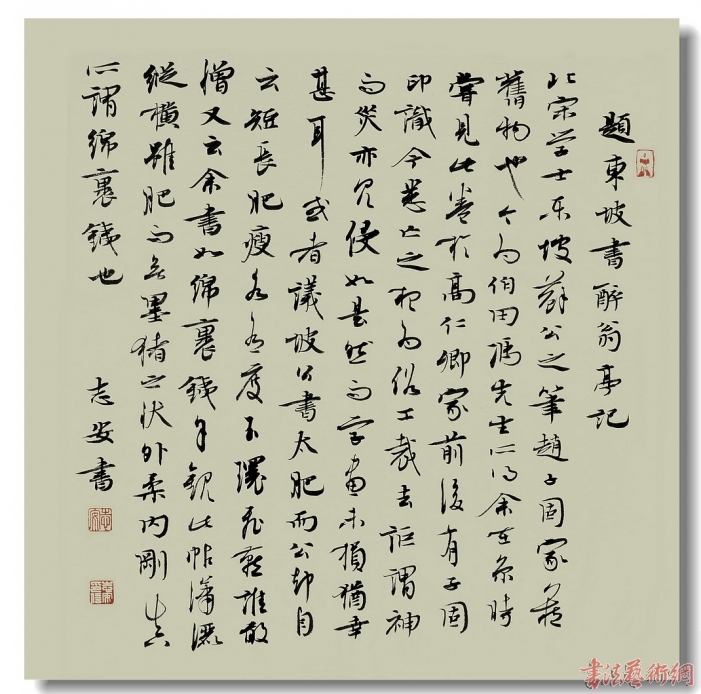 題東坡書醉翁亭記
北宋学士东坡蘇公之筆趙子固家藏
舊物也今为伯田馮先生所得余在京時
嘗見此卷於高仁卿家前後有子固
印識今悉亡之想为俗工裁去詎謂神
而灾亦见侵如是然而字畫未損猶幸
甚耳或者議坡公書太肥而公却自
云短長肥瘦各有度玉環飛燕誰敢
憎又云余書如綿裹鐵余觀此帖瀟灑
縱橫雖肥而无墨猪之状外柔内剛真
所謂綿裹鐵也
志安書
書法藝術網